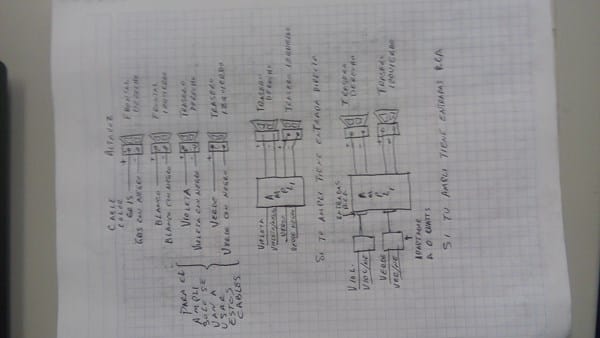 CABLE COLOR ALTAVOZ
GRIS + FRONTAL DERECHO
GRIS CON NEGRO -
BLANCO + FRONTAL IZQUIERDO
BLANCO CON NEGRO -
VIOLETA + TRASERO DERECHO
VIOLETA CON NEGRO -
VERDE + TRASERO IZQUIERDO
VERDE CON NEGRO -
PARA EL
AMPLI
SOLO SE
VAN A
USAR
ESTOS
CABLES.
VIOLETA
VERDE
AMPLI
TRASERO DERECHO
TRASERO IZQUIERDO
SI TU AMPLI TIENE ENTRADA DIRECTA
VIOL.
VIO/NE
VERDE
VER/NE
ENTRADAS RCA
AMPLI
TRASERO DERECHO
TRASERO IZQUIERDO
ADAPTADOR
SI TU AMPLI TIENE ENTRADAS RCA